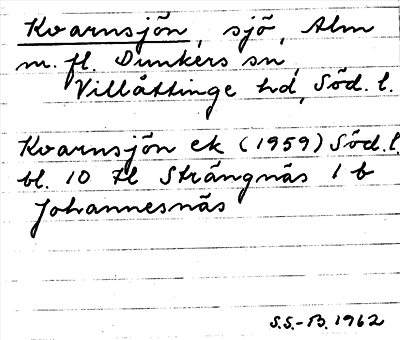 Kvarnsjön, sjö, Alm
m. fl. Dunkers sn,
Villåttinge hd, Söd. l.
Kvarnsjön ek (1959) Söd. l.
bl. 10 tl Strängnäs 1 b
Johannesnäs
S.S.-B. 1962